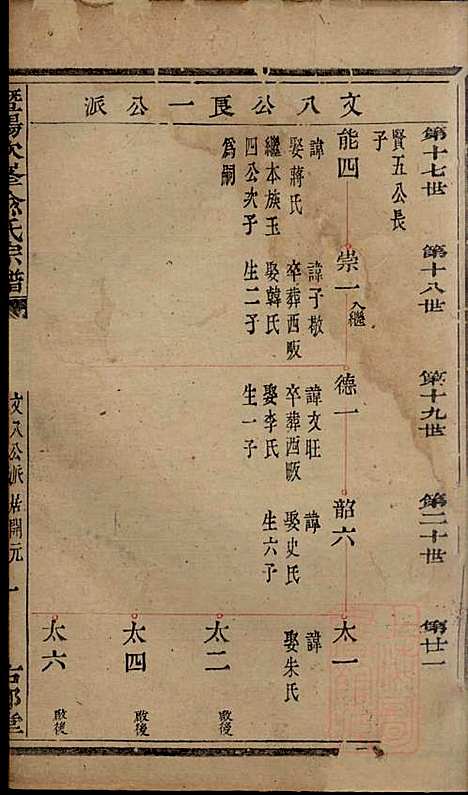 文八公長一公派
第十七世
第十八世
第十九世
第二十世
第廿一
賢五公長
子
能四
諱
娶蔣氏
繼本族玉
四公次子
為嗣
崇一
入繼
諱子敬
卒葬西畈
娶韓氏
生二子
德一
諱文旺
卒葬西畈
娶李氏
生一子
韶六
諱
娶史氏
生六子
太一
諱
娶朱氏
太二
啟後
太四
啟後
太六
啟後
氏宗譜
文八公派
開元
一
堂